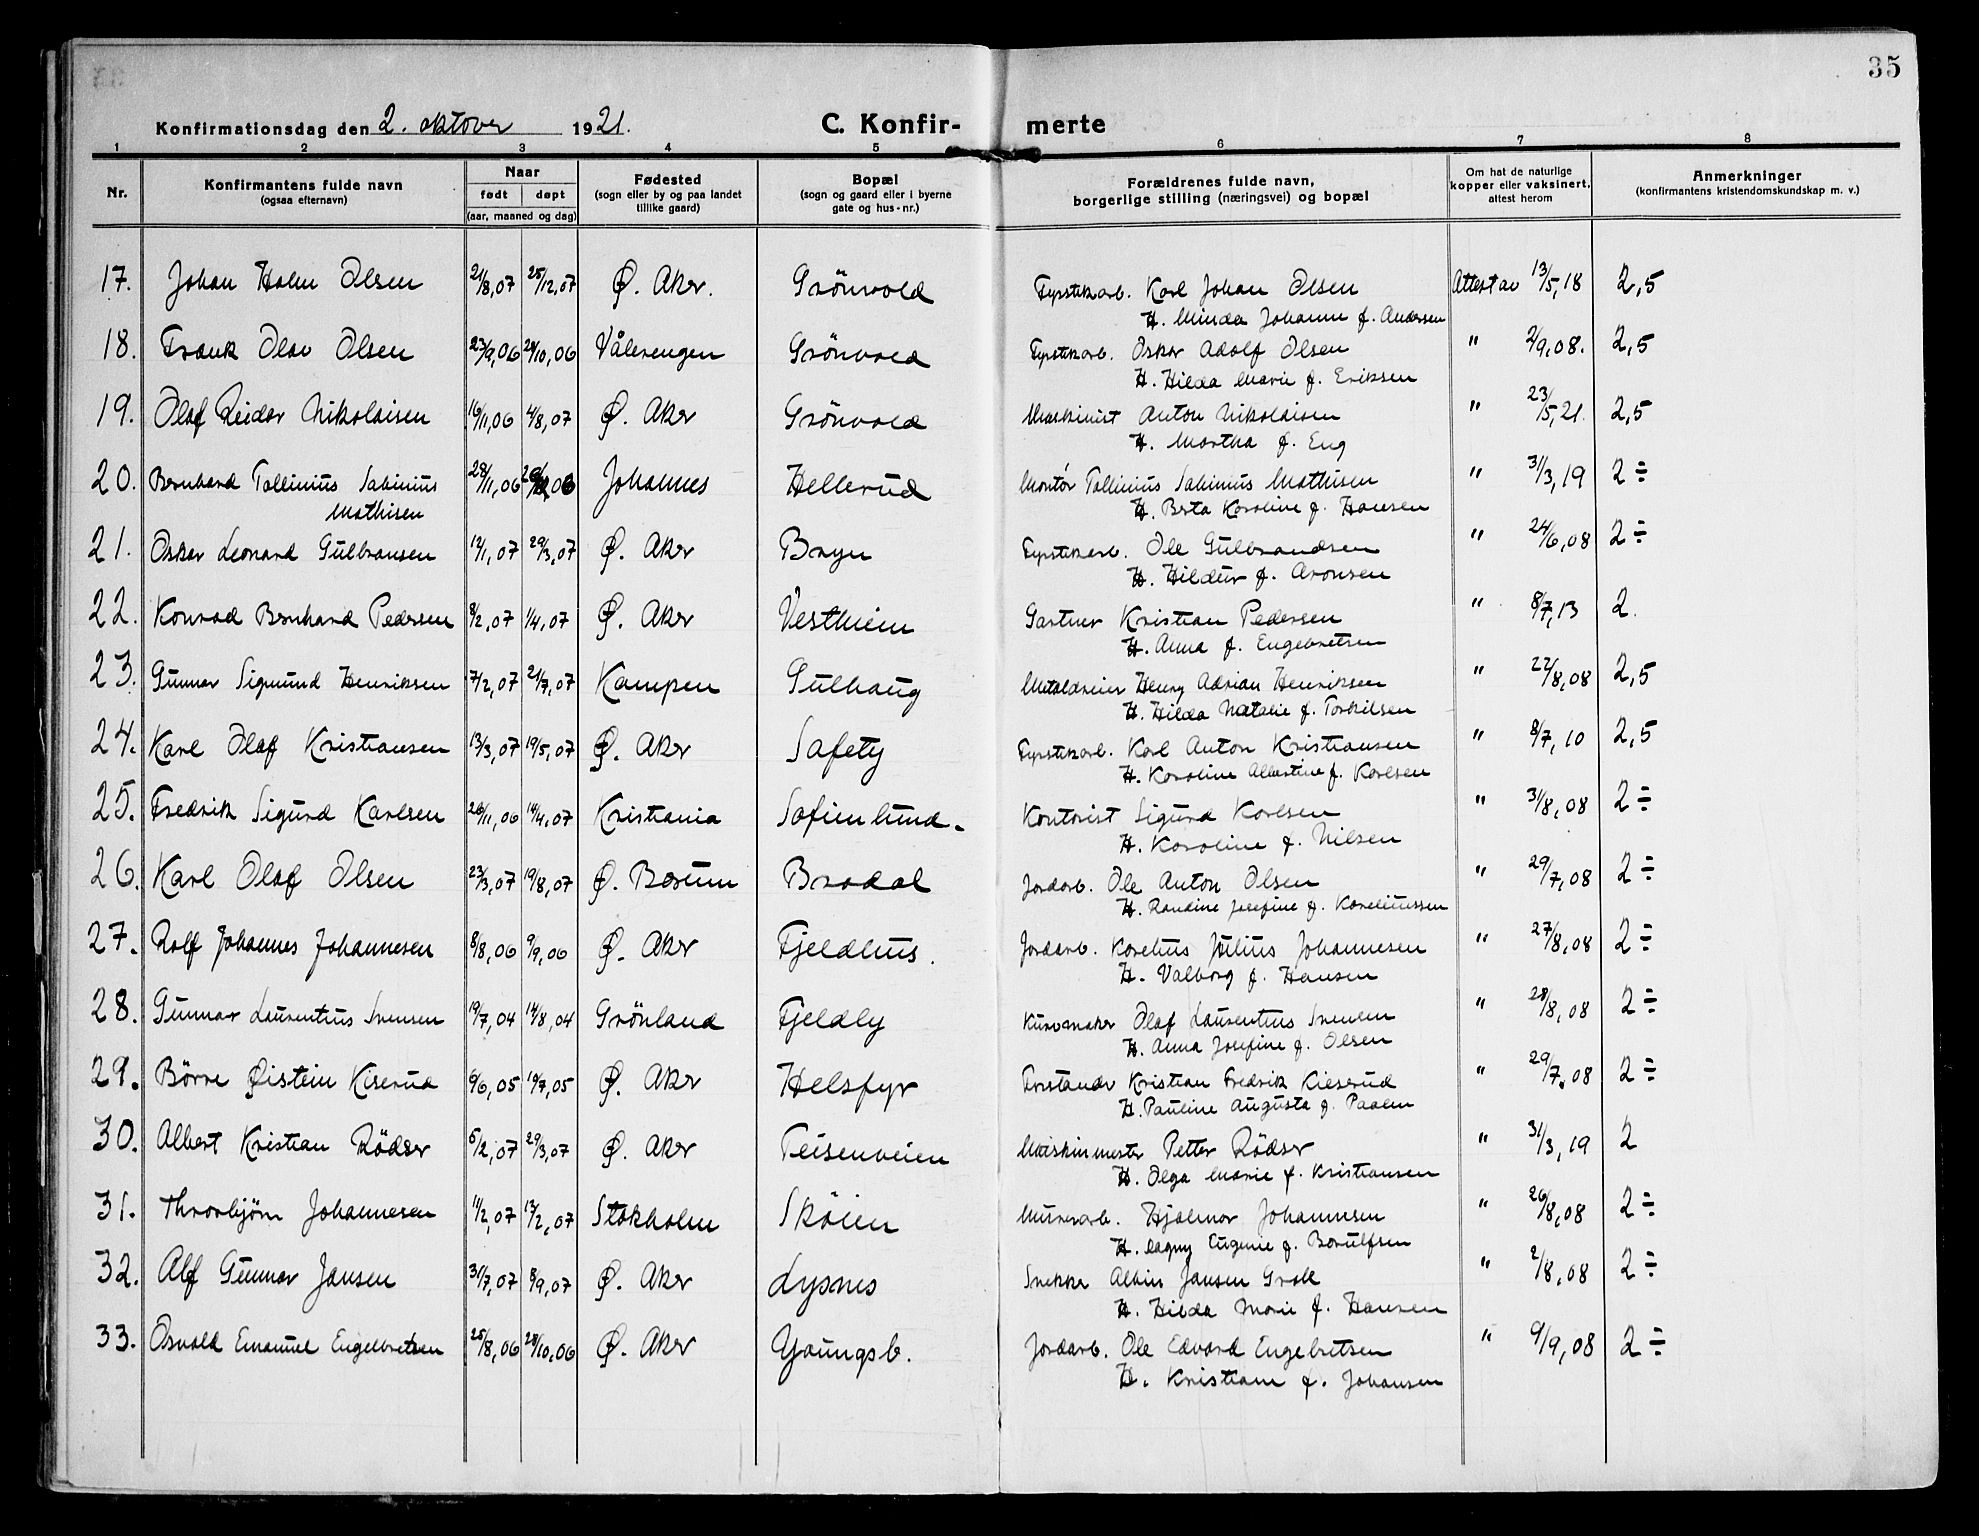 35
Konfirmationsdag den 2. oktober 1921.
C. Konfir- merte
1 2 3 4 5 6 7 8
Nr.
Konfirmantens fulde navn
(ogsaa efternavn)
Naar
født døpt
(aar, maaned og dag)
Fødested
(sogn eller by og paa landet
tillike gaard)
Bopæl
(sogn og gaard eller i byerne
gate og hus-nr.)
Forældrenes fulde navn,
borgerlige stilling (næringsvei) og bopæl
Om hat de naturlige
kopper eller vaksinert,
attest herom
Anmerkninger
(konfirmantens kristendomskundskap m. v.)
17. Johan Holm Olsen 21/8,07 25/12,07 Ø. Aker. Grönvold Fyrstikarb. Karl Johan Olsen Attest av 13/5,18 2,5
H. Minda Johanne f. Andersen
18. Frank Olav Olsen 23/9,06 28/10,06 Vålerengen Grönvold Fyrstikarb. Oskar Adolf Olsen " 2/9,08. 2,5
H. Hilda Marie f. Eriksen
19. Olaf Reidar Nikolaisen 16/11,06 4/8,07 Ø. Aker Grönvold Maskinist Anton Nikolaisen " 23/5,21. 2,5
H. Martha f. Eng
20. Bernhard Tollinius Sabinius 28/11,06 Johannes Hellerud Montör Tollinius Sabinius Mathisen " 31/3,19 2÷
Mathisen H. Berta Karoline f. Hansen
21. Oskar Leonard Gulbransen 12/1,07 29/3,07 Ø. Aker Bryn Fyrstikarb. Ole Gulbrandsen " 24/6,08 2÷
H. Hildur f. Aronsen
22. Konrad Bernhard Pedersen 8/2,07 1/4,07 Ø. Aker Vestheim Gartner Kristian Pedersen " 8/7,13 2.
H. Anna f. Engebretsen
23. Gunnar Sigmund Henriksen 7/2,07 21/7,07 Kampen Gulhaug Metaldreier Henry Adrian Henriksen " 22/8,08 2,5
H. Hilda Natalie f. Torkilsen
24. Karl Olaf Kristiansen 13/3,07 19/5,07 Ø. Aker Safety Fyrstikarb. Karl Anton Kristiansen " 8/7,10 2,5
H. Karoline Albertine f. Karlsen
25. Fredrik Sigurd Karlsen 26/11,06 14/4,07 Kristiania Sofienlund. Kontorist Sigurd Karlsen " 31/8,08 2÷
H. Karoline f. Nilsen
26. Karl Olaf Olsen 23/3,07 19/8,07 Ø. Bærum Brodal Jordarb. Ole Anton Olsen " 29/7,08 2÷
H. Randine Josefine f. Koreliussen
27. Rolf Johannes Johannesen 8/8,06 9/9,06 Ø. Aker Fjeldhus. Jordarb. Korelius Julius Johannesen " 27/8,08 2÷
H. Valborg f. Hansen
28. Gunnar Laurentius Svensen 19/7,04 14/8,04 Grönland Fjeldly Kurvmaker Olaf Laurentius Svensen " 28/8,08 2÷
H. Anna Josefine f. Olsen
29. Börre Øistein Kiserud 6/6,05 19/7,05 Ø. Aker Helsfyr Forstander Kristian Fredrik Kieserud " 29/7,08 2÷
H. Pauline Augusta f. Paalen
30. Albert Kristian Rödser 5/2,07 29/3,07 Ø. Aker Teisenveien Maskinmester Petter Rödser " 31/3,19 2
H. Olga Marie f. Kristiansen
31. Throrbjörn Johannesen 11/2,07 Stokholm Sköien Murerarb. Hjalmar Johannesen " 26/8,08 2÷
H. Dagny Eugenie f. Borulfsen
32. Alf Gunnar Jansen 31/7,07 8/9,07 Ø. Aker Lysnes Snekker Albin Jansen " 2/8,08 2÷
H. Hilda Marie f. Hansen
33. Osvald Emanuel Engelbretsen 25/8,06 28/10,06 Ø. Aker Youngsb. Jordarb. Ole Edvard Engebretsen " 9/9,08 2÷
H. Kristiane f. Johansen